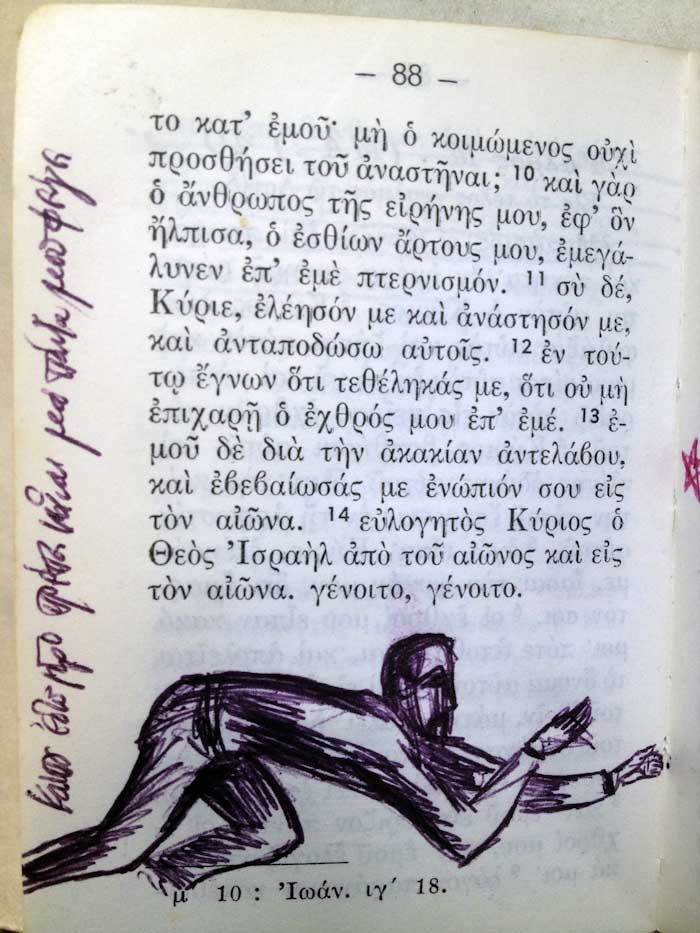 — 88 —
το κατ’ ἐμοῦ· μὴ ὁ κοιμώμενος οὐχὶ
προσθήσει τοῦ ἀναστῆναι; 10 καὶ γὰρ
ὁ ἄνθρωπος τῆς εἰρήνης μου, ἐφ’ ὃν
ἤλπισα, ὁ ἐσθίων ἄρτους μου, ἐμεγά-
λυνεν ἐπ’ ἐμὲ πτερνισμόν. 11 σὺ δέ,
Κύριε, ἐλέησόν με καὶ ἀνάστησόν με,
καὶ ἀνταποδώσω αὐτοῖς. 12 ἐν τού-
τῳ ἔγνων ὅτι τεθέληκάς με, ὅτι οὐ μὴ
ἐπιχαρῇ ὁ ἐχθρός μου ἐπ’ ἐμέ. 13 ἐ-
μοῦ δὲ διὰ τὴν ἀκακίαν ἀντελάβου,
καὶ ἐβεβαίωσάς με ἐνώπιόν σου εἰς
τὸν αἰῶνα. 14 εὐλογητὸς Κύριος ὁ
Θεὸς Ἰσραὴλ ἀπὸ τοῦ αἰῶνος καὶ εἰς
τὸν αἰῶνα. γένοιτο, γένοιτο.
μ΄ 10 : Ἰωάν. ιγ΄ 18.